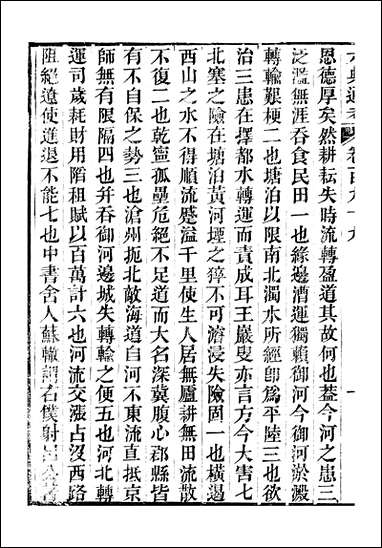 六典通考 卷百九十九
恩德厚矣然耕耘失時流轉盈道其故何也蓋今河之患三
泛濫無涯吞食民田一也緣邊漕運獨賴御河今御河淤澱
轉輸艱梗二也塘泊以限南北濁水所經卽爲平陸三也欲
治三患在擇都水轉運而責成耳王巖叟亦言方今大害七
北塞之險在塘泊黃河堙之猝不可濬浸失險固一也橫遏
西山之水不得順流蹙溢千里使生人居無廬耕無田流散
不復二也乾寧孤壘危絕不足道而大名深冀腹心郡縣皆
有不自保之勢三也滄州扼北敵海道自河不東流直抵京
師無有限隔四也并吞御河邊城失轉輸之便五也河北轉
運司歲耗財用陷租賦以百萬計六也河流交漲占沒西路
阻絕遼使進退不能七也中書舍人蘇轍謂右僕射呂公著